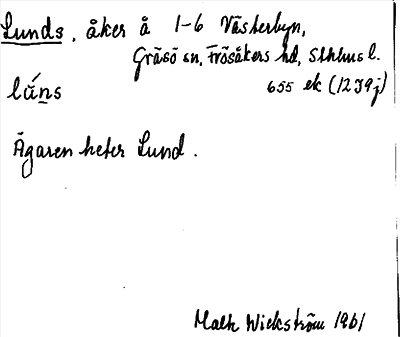 Lunds, åker å 1-6 Västerbyn,
Gräsö sn, Frösåkers hd, Sthlms l.
655 ek (12J9j)
lú̄ns
Ägaren heter Lund.
Malte Wickström 1961